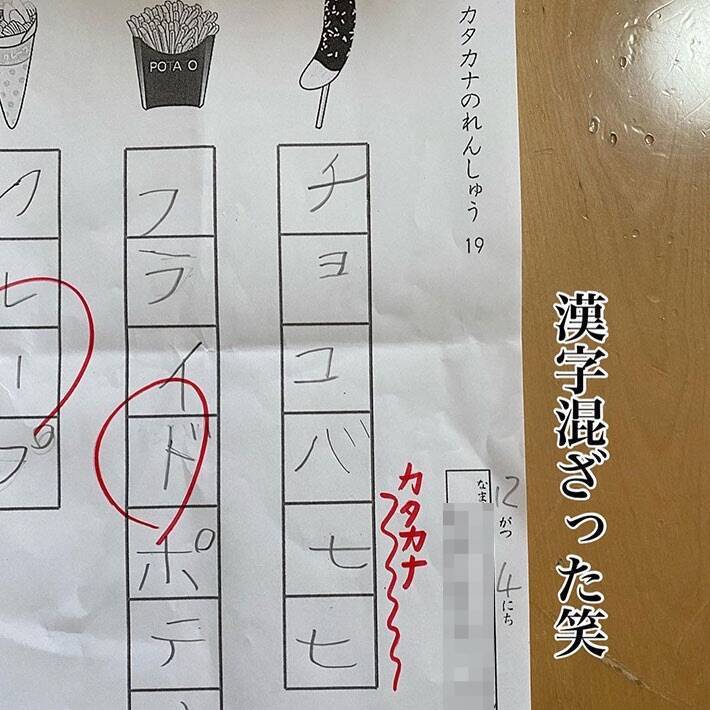 漢字混ざった笑
カタカナのれんしゅう 19
12がつ 4にち
なま
カタカナ
チヨコバ七七
POTA O
フライドポテ
レープ